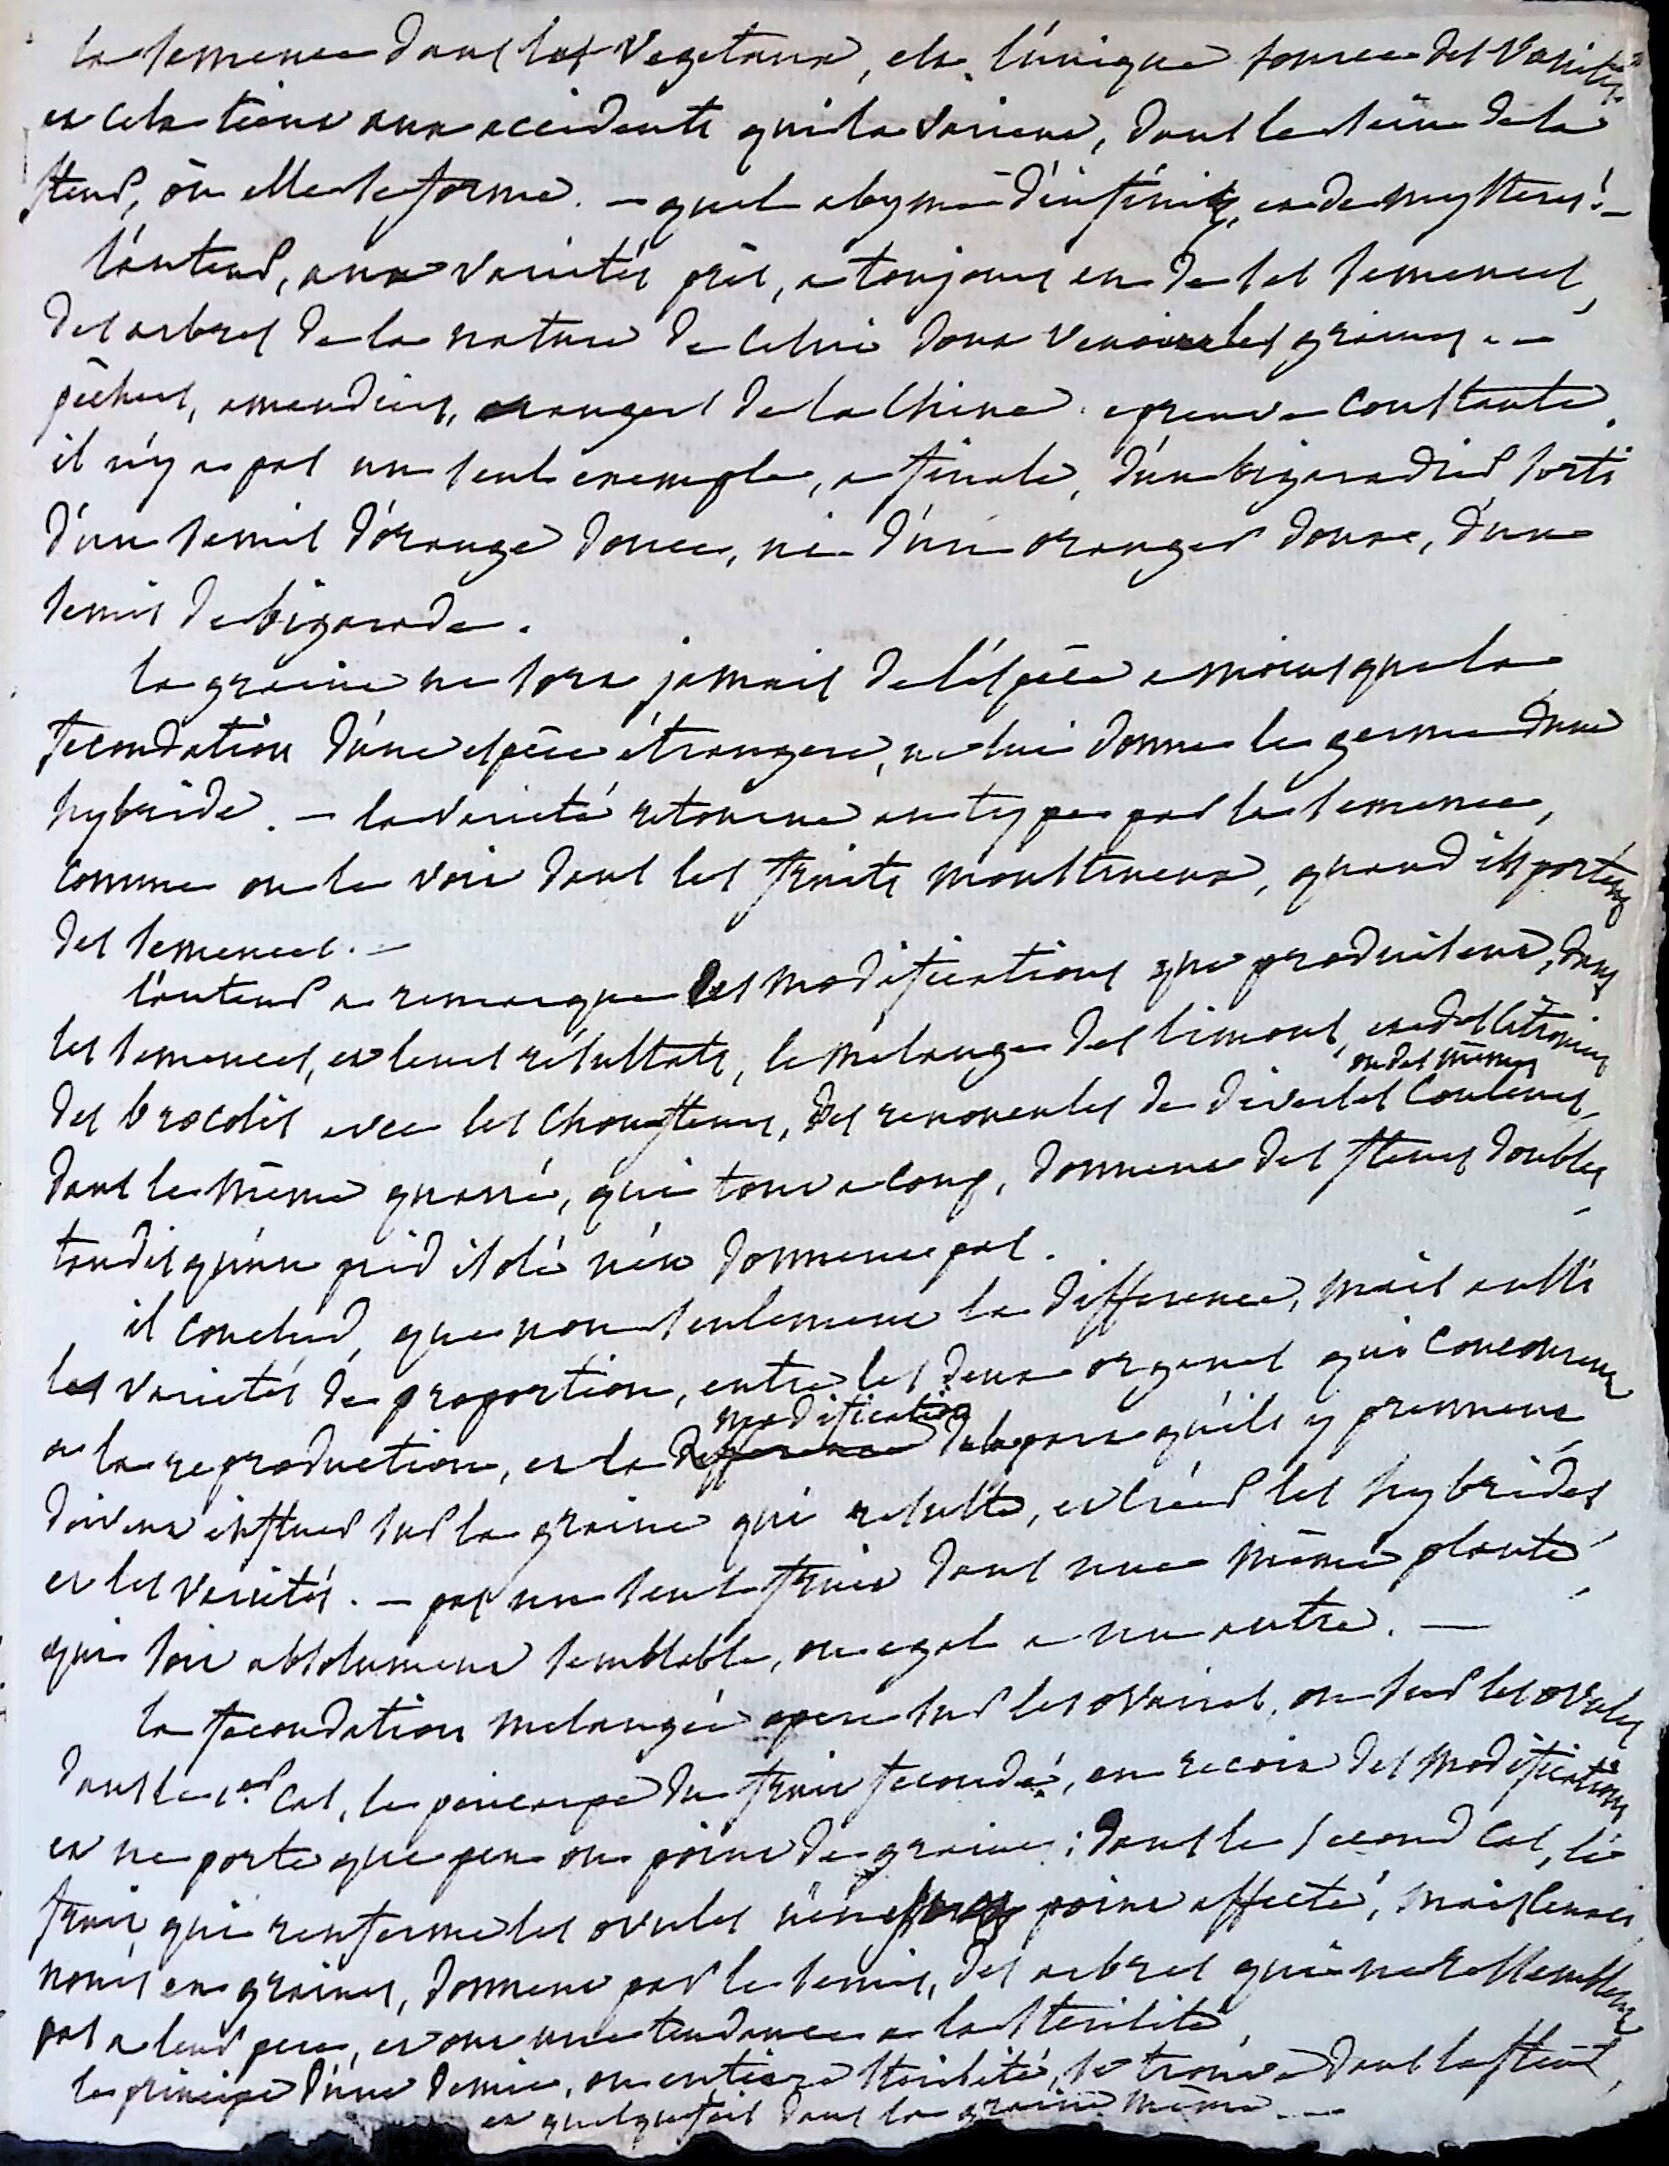 la semence dans les vegetaux, est l'unique source des variétés
et cela tient aux accidents qui la varient, dans le sein de la
fleur, où elle se forme. — quel abyme d'infinité, et de mysteres! —
l'auteur, aux varietés près, a toujours eu de ses semences,
des arbres de la nature de celui dont venoient les graines. —
pêchers, amandiers, orangers de la Chine. epreuve constante.
il n'y a pas un seul exemple, a finale, d'un bigaradier sorti
d'un semis d'orange douce, ni d'un oranger doux, d'un
semis de bigarade.
la graine ne sort jamais de l'espèce a moins que la
fecondation d'une espèce étrangere, ne lui donne le germe d'une
hybride. — la varieté retourne au type par la semence,
comme on le voit dans les fruits monstrueux, quand ils portent
des semences. —
l'auteur a remarqué les modifications que produisent, dans
les semences, et leurs résultats, le melange des limons, et des citroniers
des brocolis avec les choufleurs, des renoncules de diverses couleurs,
ou des mêmes
dans le même quarré, qui tout a coup, donnent des fleurs doubles
tandis qu'un pied isolé n'en donnent pas.
il conclud, que non seulement la difference, mais aussi
les varietés de proportion, entre les deux organes qui concourent
modification
a la reproduction, et la difference de la part qu'ils y prennent
doivent influer sur la graine qui resulte, et créer les hybrides
et les varietés. — pas un seul fruit dans une même plante,
qui soit absolument semblable, ou egal a un autre. —
la fecondation melangée opere sur les ovaires, ou sur les ovules
dans le 1.er cas, le pericarpe du fruit fecondé, en recoit des modifications
et ne porte que peu ou point de graines; dans le second cas, le
fruit, qui renferme les ovules n'en est point affecté, mais
en graines, donnent par le semis, des arbres qui ne ressemblent
pas a leur pere, et ont une tendance a la stérilité,
le principe d'une demie, ou entiere sterilité, se trouve dans la fleur,
et quelquefois dans la graine même. —